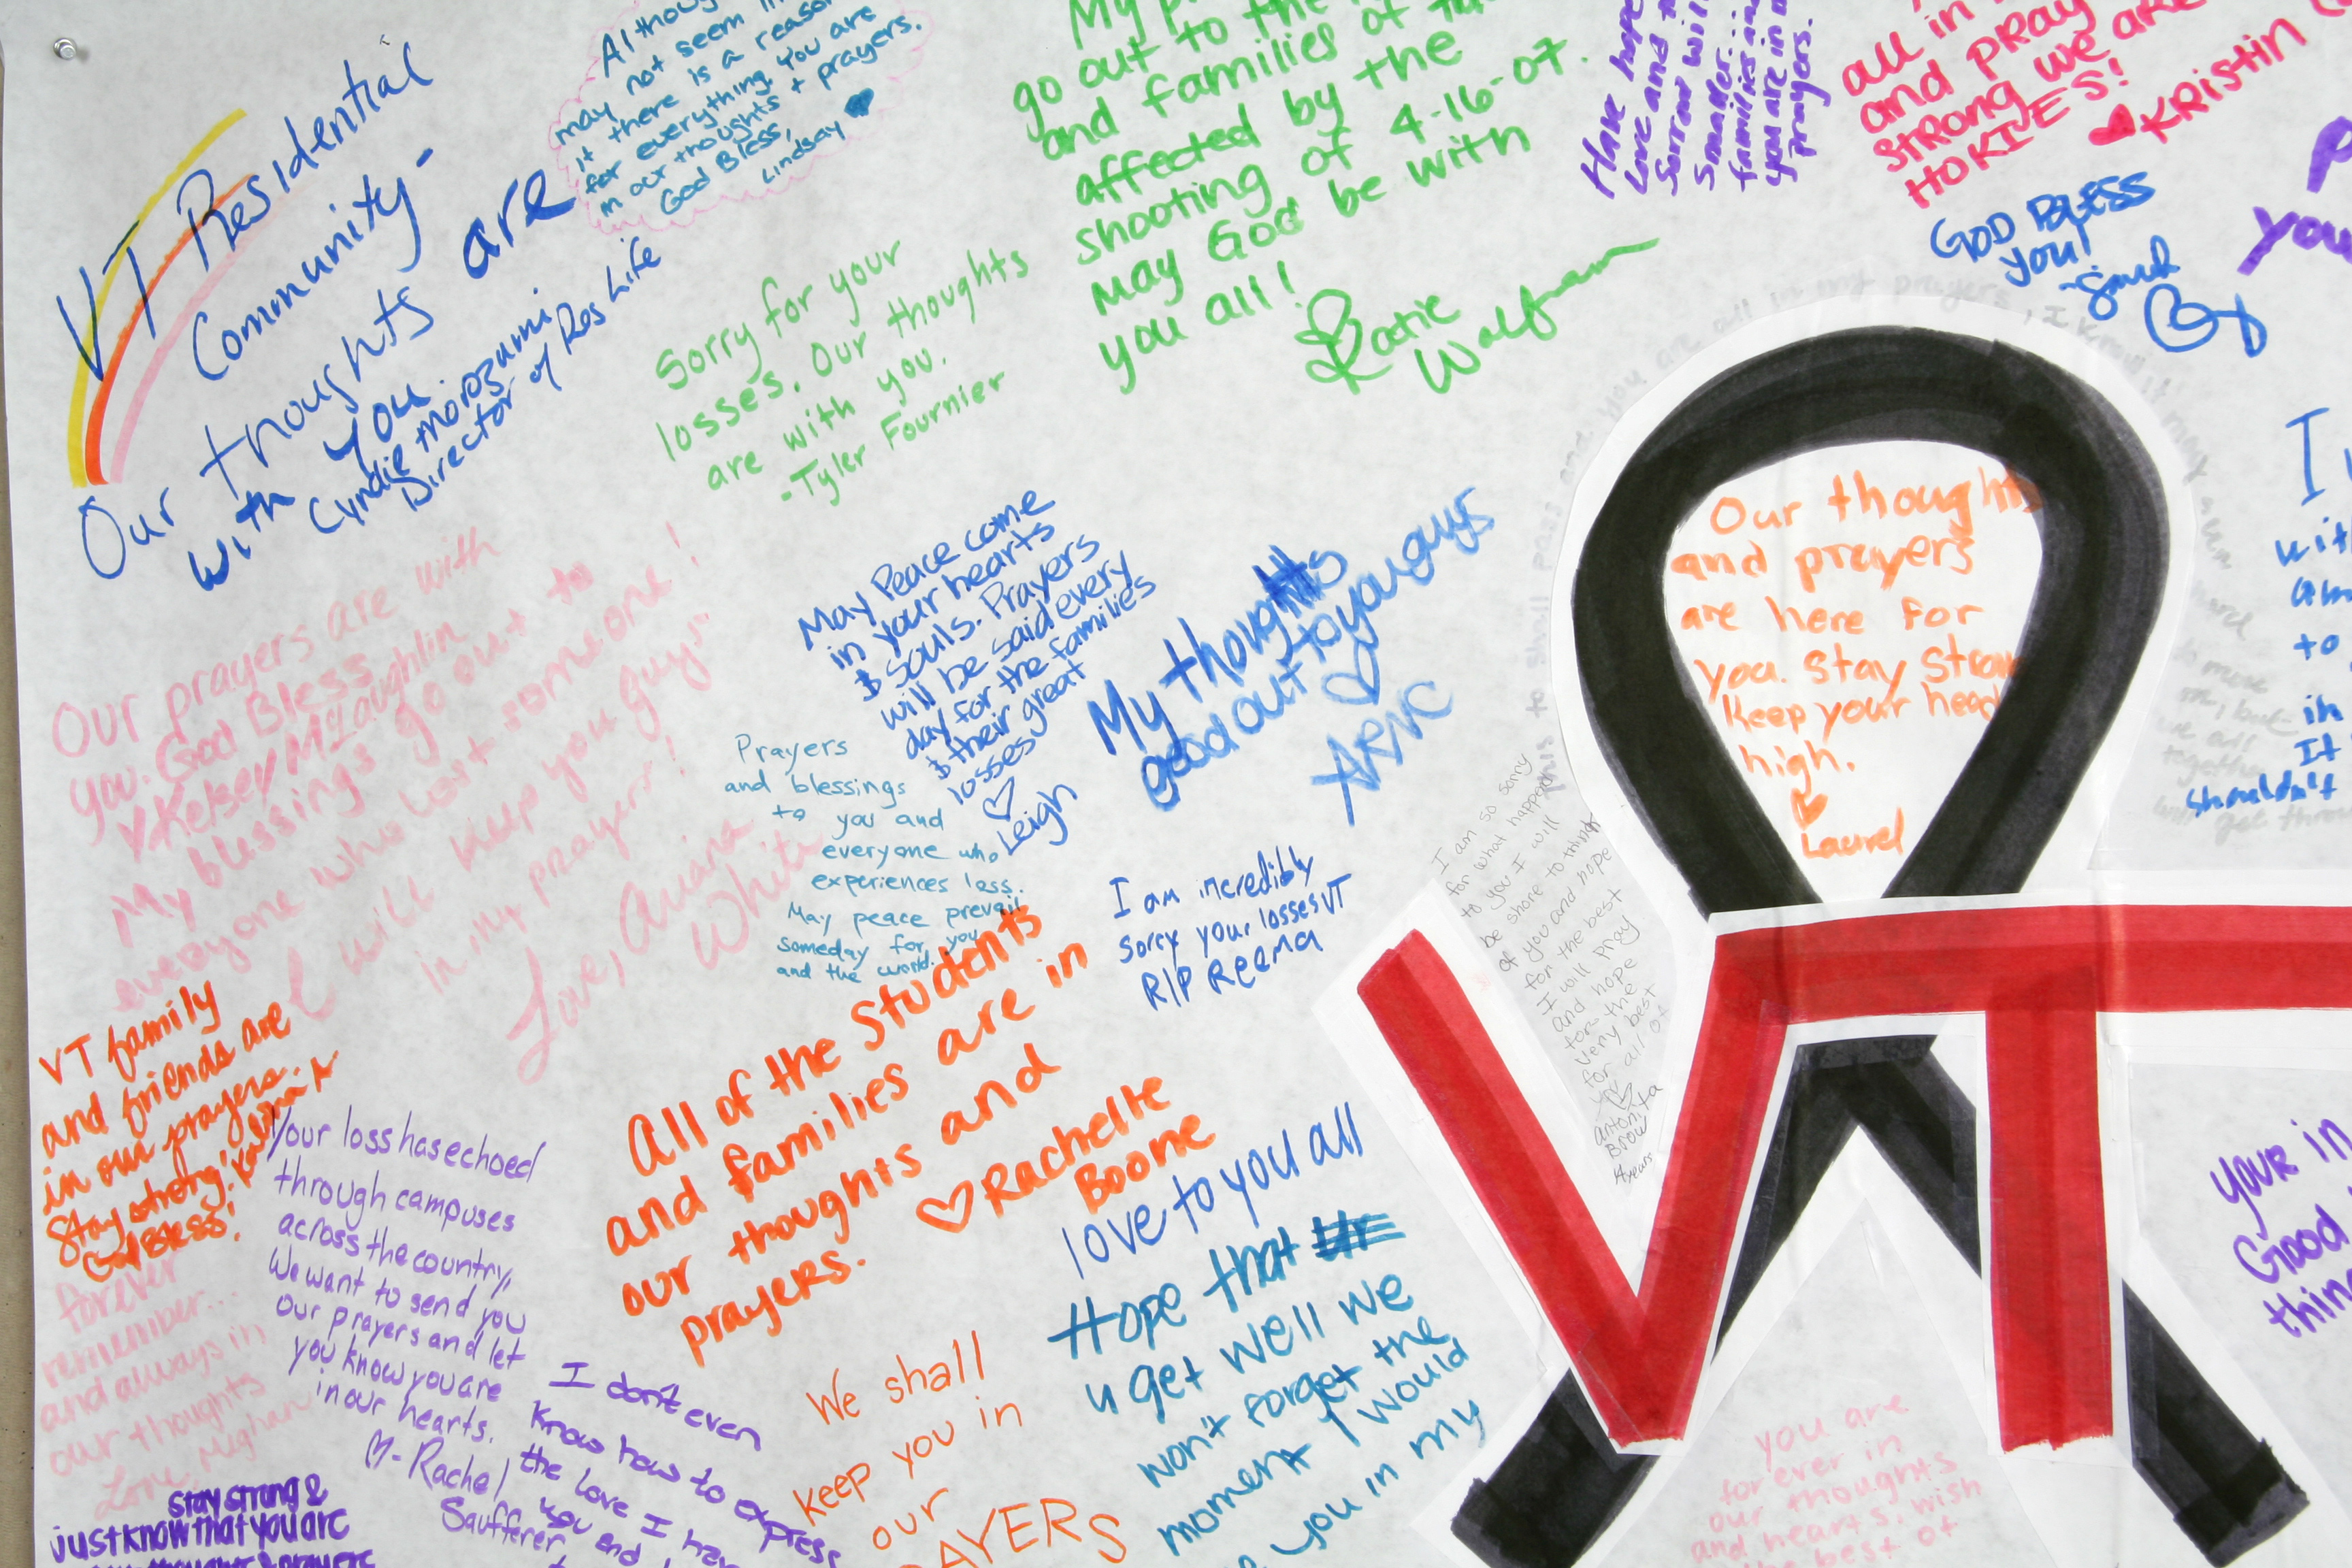 VT Residential
Community-
Our thoughts are
with you.
Cyndie Morozumi
Director of Res Life
Although
may not seem
it there is a reason
for everything. You are
in our thoughts + prayers.
God Bless,
Lindsay
My
go out to the
and families of
affected by the
shooting of 4-16-07.
May God be with
you all!
Katie
Wolfram
Have hope
Love and
Sorrow will
Smaller...
families and
you are in
prayers.
all in
and pray
strong we are
HOKIES!
KRistin
GOD BLESS
you!
you
Sorry for your
losses. Our thoughts
are with you.
-Tyler Fournier
Our prayers are with
you. God Bless
Kelsey McLaughlin
My blessings go out to
everyone who lost someone!
I will keep you guys
in my prayers!
Love, Ariana
White
May Peace come
in your hearts
& souls. Prayers
will be said every
day for the families
& their great
losses
Leigh
My thoughts
good out to you guys
Prayers
and blessings
to you and
everyone who
experiences loss.
May peace prevail
someday for you
and the world.
I am incredibly
Sorry your losses VT
R/P REEMA
you are all in my prayers, I know it may
this to shall pass and
Our thoughts
and prayers
are here for
you. Stay Strong
Keep your head
high.
Laurel
I am so sorry
for what happend
to you I will
be shore to think
of you and hope
for the best
I will pray
and hope
for the
very best
for all of
you
Antonita
Brow
4years
I
wit
am
to
in
It
shouldn't
VT
VT family
and friends are
in our prayers.
Stay strong!
God Bless!
Your loss has echoed
through campuses
across the country,
We want to send you
our prayers and let
you know you are
in our hearts.
- Rachel
Saufferer
All of the Students
and families are in
our thoughts and
prayers.
Rachelle
Boone
love to you all
Hope that
u get well we
won't forget the
moment I would
you in my
forever
remember...
and always in
our thoughts
Love, Meghan
Stay strong &
just know that you are
thoughts & prayers
I don't even
know how to express
the love I have
you and
We shall
keep you in
our
PRAYERS
your in
Good
thin
you are
forever in
our thoughts
and hearts, wish
the best of